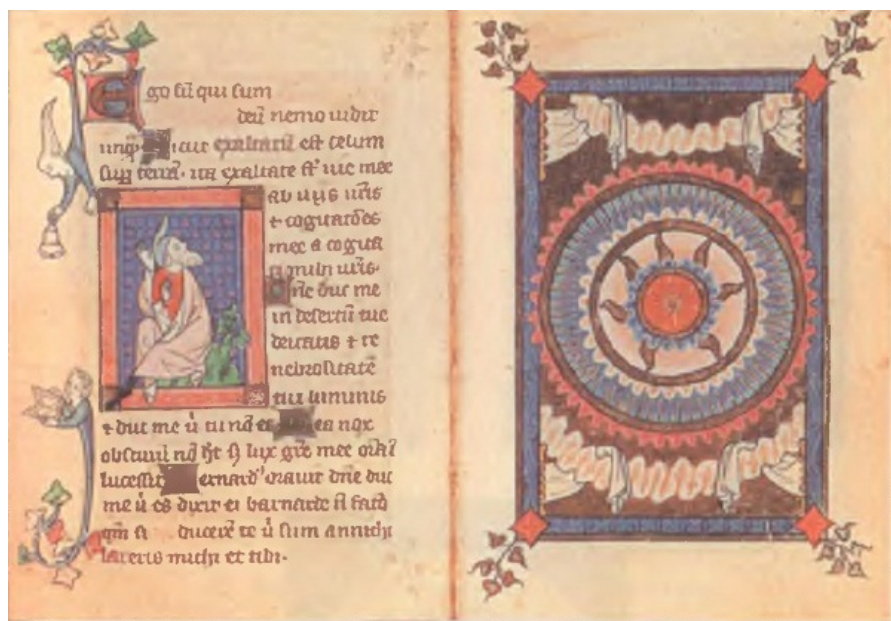 Ego sū qui sum
deū nemo uidit
unq̄ sicut exaltatū est celum
sup̱ terrā. ita exaltate st̄ uie mee
ab uijs ur̄is
+ cogitatōes
mee a cogita
ur̄is.
Dn̄e duc me
in desertū tue
deitatis + te
nebrositatē
tui luminis
+ duc me ū tu nō es nox
obscurū nō ht̄ lux
ernard' orauit dn̄e duc
me ū es dixit ei barnarde nō faciā
qm̄ si ducerē te ū sum annichi
lareris michi et tibi.